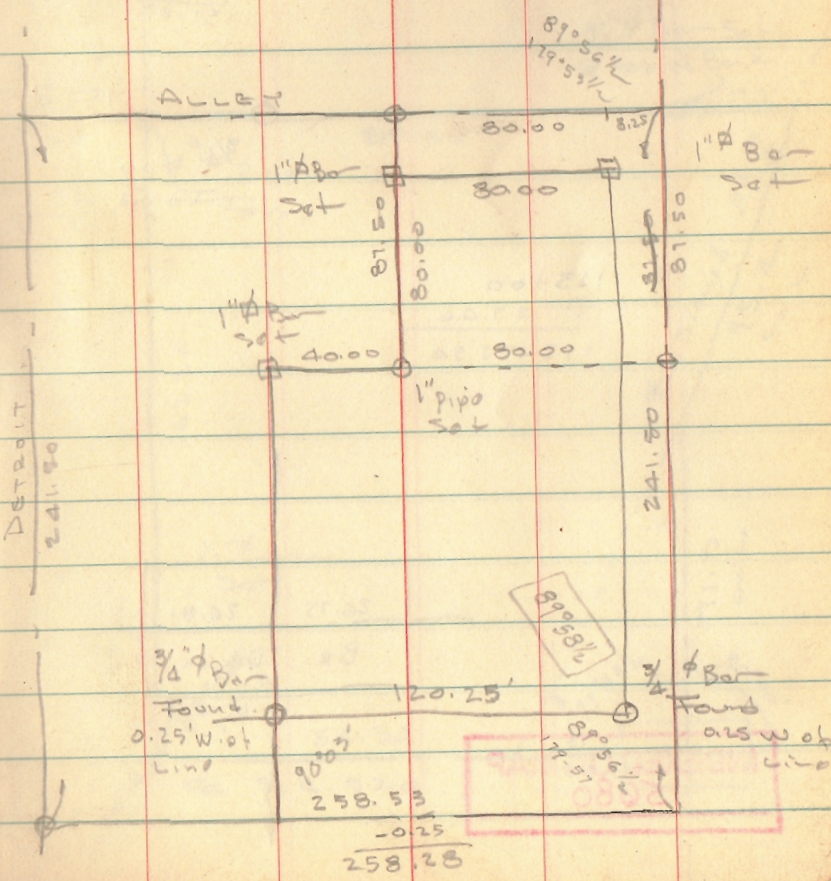 89°56½
179°53½
ALLEY
80.00
8.25
1"⌀ Bar
Set
80.00
1"⌀ Bar
Set
87.50
80.00
87.50
87.50
1"⌀ Bar
Set
40.00
80.00
1" pipe
Set
DETROIT
241.80
241.80
89°58½
3/4"⌀ Bar
Found
0.25' W. of
Line
120.25'
3/4 ⌀ Bar
Found
0.25 W of
Line
90°03'
89°56½
179-57
258.53
-0.25
258.28